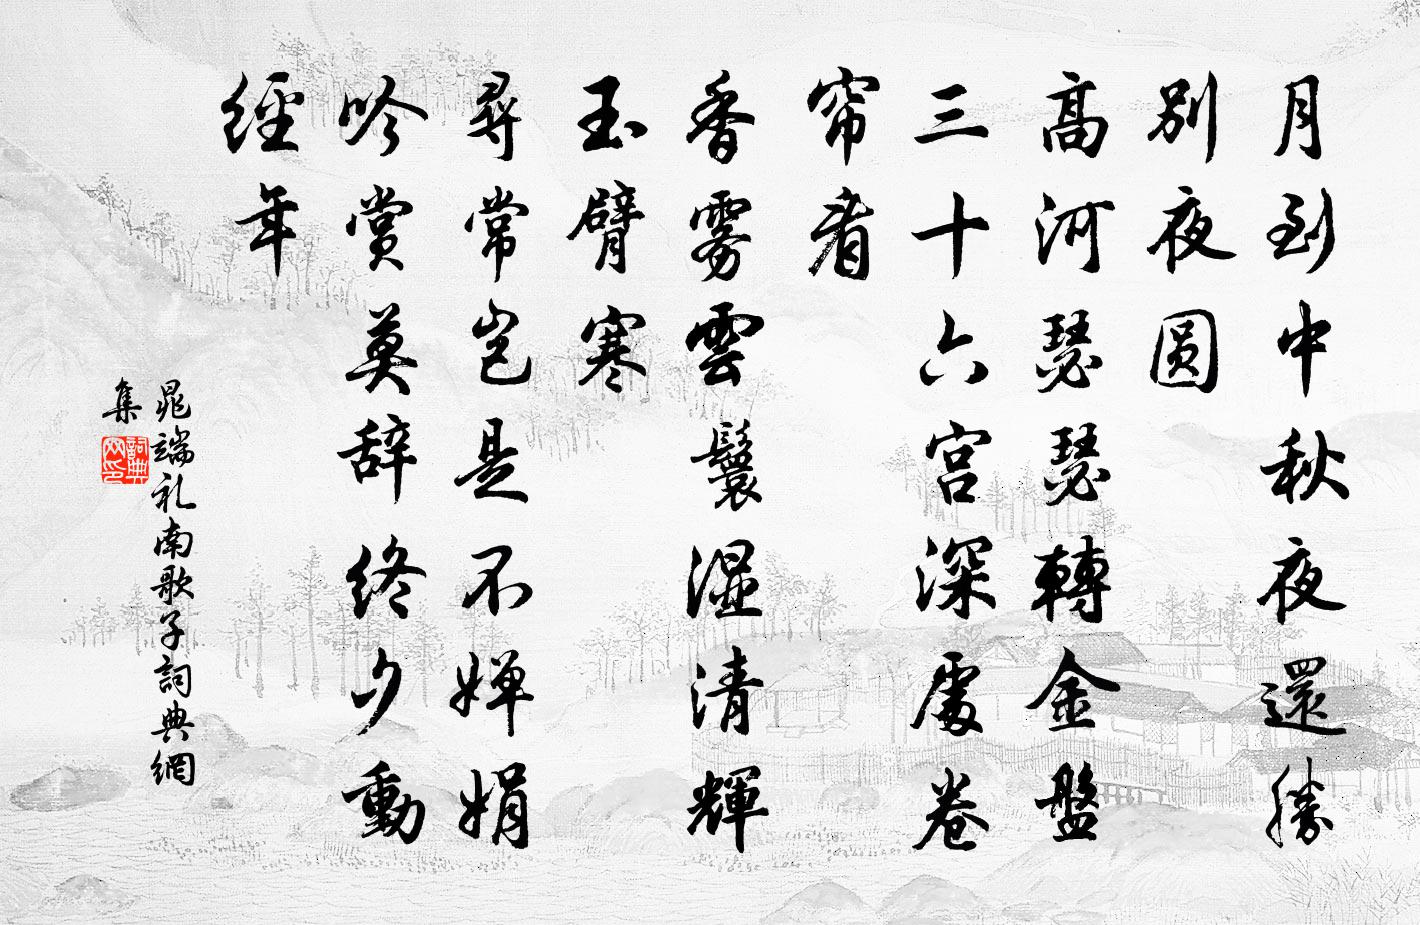 月到中秋夜還勝
別夜圆
高河瑟瑟轉金盤
三十六宫深處卷
帘看
香雾雲鬟湿清輝
玉臂寒
尋常岂是不婵娟
吟賞莫辞终夕動
經年
晁端礼南歌子詞典網
集
詞典
网印